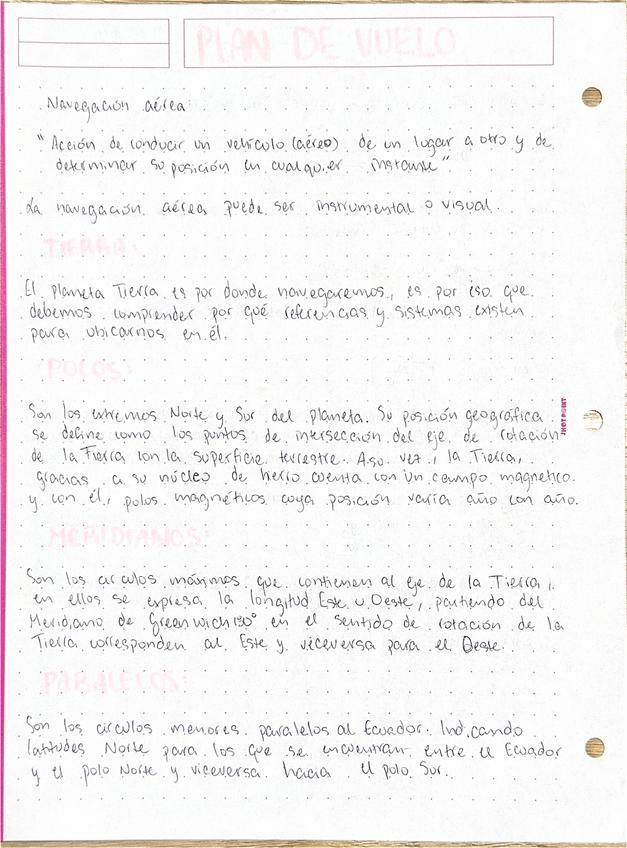 PLAN DE VUELO
Navegación aérea:
" Acción de conducir un vehículo (aéreo) de un lugar a otro y de
determinar su posición en cualquier instante".
La navegación aérea puede ser instrumental o visual.
TIERRA:
El planeta Tierra es por donde navegaremos, es por eso que
debemos comprender por qué referencias y sistemas existen
para ubicarnos en él.
POLOS:
Son los extremos Norte y Sur del planeta. Su posición geográfica
se define como los puntos de intersección del eje de rotación
de la Tierra con la superficie terrestre. A su vez, la Tierra,
gracias a su núcleo de hierro cuenta con un campo magnético
y con él, polos magnéticos cuya posición varía año con año.
JHOTPOINT
MERIDIANOS:
Son los círculos máximos que contienen al eje de la Tierra,
en ellos se expresa la longitud Este u Oeste, partiendo del
Meridiano de Greenwich en el sentido de rotación de la
Tierra corresponden al Este y viceversa para el Oeste.
PARALELOS:
Son los círculos menores paralelos al Ecuador. Indicando
latitudes Norte para los que se encuentran entre el Ecuador
y el polo Norte y viceversa hacia el polo Sur.